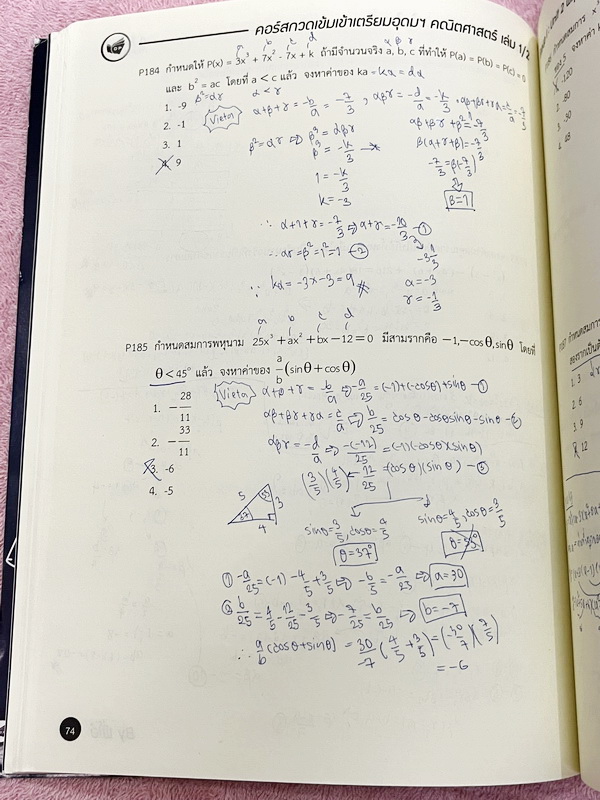 คอร์สกวดเข้มเข้าเตรียมอุดมฯ คณิตศาสตร์ เล่ม 1/2
a b c d α β γ
P184 กำหนดให้ P(x) = 3x³ + 7x² - 7x + k ถ้ามีจำนวนจริง a, b, c ที่ทำให้ P(a) = P(b) = P(c) = 0
และ b² = ac โดยที่ a < c แล้ว จงหาค่าของ ka = kα
β² = αγ α < γ
1. -9
2. -1
3. 1
4. 9
Vieta
α+β+γ = -b/a = -7/3 , αβγ = -d/a = -k/3
β² = αγ ⇒ β³ = αβγ
β³ = -k/3
1 = -k/3
k = -3
αβ+βγ+β² = -7/3
β(α+γ+β) = -7/3
-7/3 = β(-7/3)
β=1
∴ α+1+γ = -7/3 ⇒ α+γ = -10/3 ①
-3 1/3
∴ αγ = β² = 1² = 1 ②
α = -3
γ = -1/3
∴ kα = -3x-3 = 9 #
a b c d
P185 กำหนดสมการพหุนาม 25x³ + ax² + bx - 12 = 0 มีสามรากคือ -1, -cosθ, sinθ โดยที่
θ < 45° แล้ว จงหาค่าของ a/b (sinθ + cosθ)
1. -28/11
2. -33/11
3. -6
4. -5
Vieta
α+β+γ = -b/a ⇒ -a/25 = (-1)+(-cosθ)+sinθ - ①
αβ+βγ+γα = c/a ⇒ b/25 = cosθ - cosθsinθ - sinθ - ②
αβγ = -d/a ⇒ -(-12)/25 = (-1)(-cosθ)(sinθ)
(3/5)(4/5) ← 12/25 = (cosθ)(sinθ) - ③
5 53° 3
37° 4
sinθ = 3/5, cosθ = 4/5
θ = 37°
sinθ = 4/5, cosθ = 3/5
θ = 53°
① -a/25 = (-1) - 4/5 + 3/5 ⇒ -6/5 = -a/25 ⇒ a = 30
② b/25 = 4/5 - 12/25 - 3/5 ⇒ -7/25 = b/25 ⇒ b = -7
∴ a/b (cosθ + sinθ) = 30/-7 (4/5 + 3/5) = (-30/7)(7/5)
= -6
74